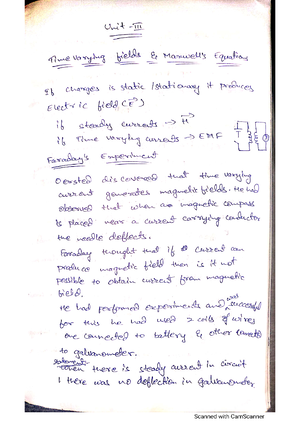 Unit - III
Time varying fields & Maxwell's Equations
If charges is static /stationary it produces
Electric field (E)
if steady currents → H
if Time varying currents → EMF
Faraday's Experiment
Oersted discovered that time varying
current generates magnetic fields. He had
observed that when a magnetic compass
is placed near a current carrying conductor
the needle deflects.
Faraday thought that if current can
produce magnetic field then is it not
possible to obtain current from magnetic
field.
He had performed experiments and was successful
for this he had used 2 coils of wires
one connected to battery & other connected
to galvanometer.
when there is steady current in circuit
there was no deflection in galvanometer
Scanned with CamScanner